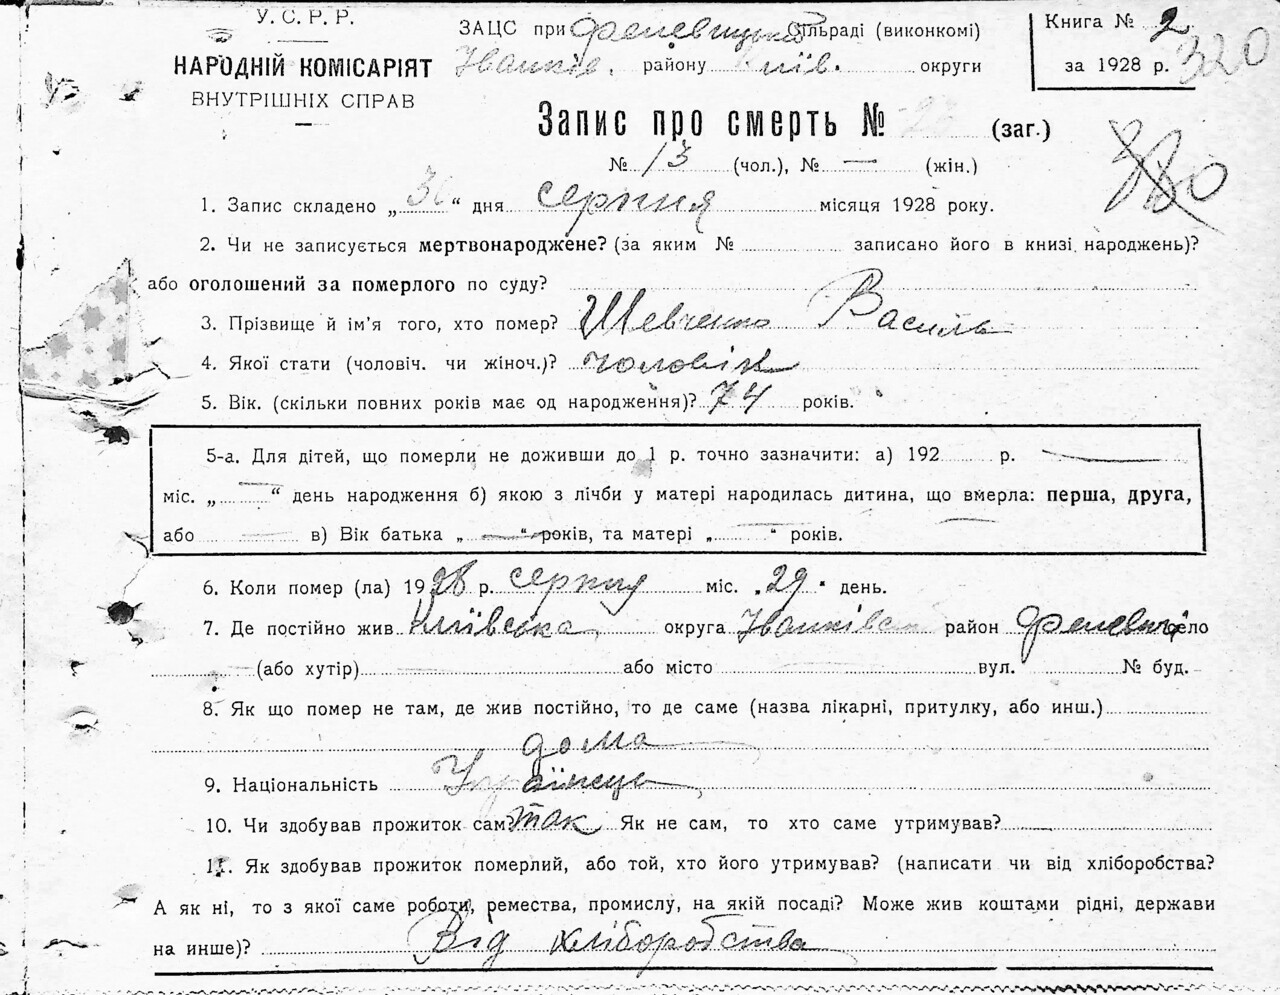 У. С. Р. Р.
НАРОДНІЙ КОМІСАРІЯТ
ВНУТРІШНІХ СПРАВ
ЗАЦС при Феневицькій сільраді (виконкомі)
Іванків. району Київ. округи
Книга № 2
за 1928 р.
320
Запис про смерть № (заг.)
№ 13 (чол.), № — (жін.)
1. Запис складено „30“ дня серпня місяця 1928 року.
2. Чи не записується мертвонароджене? (за яким № записано його в книзі народжень)?
або оголошений за померлого по суду?
3. Прізвище й ім'я того, хто помер? Шевченко Василь
4. Якої стати (чоловіч. чи жіноч.)? чоловік
5. Вік. (скільки повних років має од народження)? 74 років.
5-а. Для дітей, що померли не доживши до 1 р. точно зазначити: а) 192 р. —
міс. „—“ день народження б) якою з лічби у матері народилась дитина, що вмерла: перша, друга,
або — в) Вік батька „—“ років, та матері „—“ років.
6. Коли помер (ла) 1928 р. серпня міс. „29“ день.
7. Де постійно жив Київська округа Іванківськ район Феневичі село
(або хутір) або місто вул. № буд.
8. Як що помер не там, де жив постійно, то де саме (назва лікарні, притулку, або инш.)
дома
9. Національність Українець
10. Чи здобував прожиток сам? так Як не сам, то хто саме утримував? —
11. Як здобував прожиток померлий, або той, хто його утримував? (написати чи від хліборобства?
А як ні, то з якої саме роботи, ремества, промислу, на якій посаді? Може жив коштами рідні, держави
на инше)? Від хліборобства